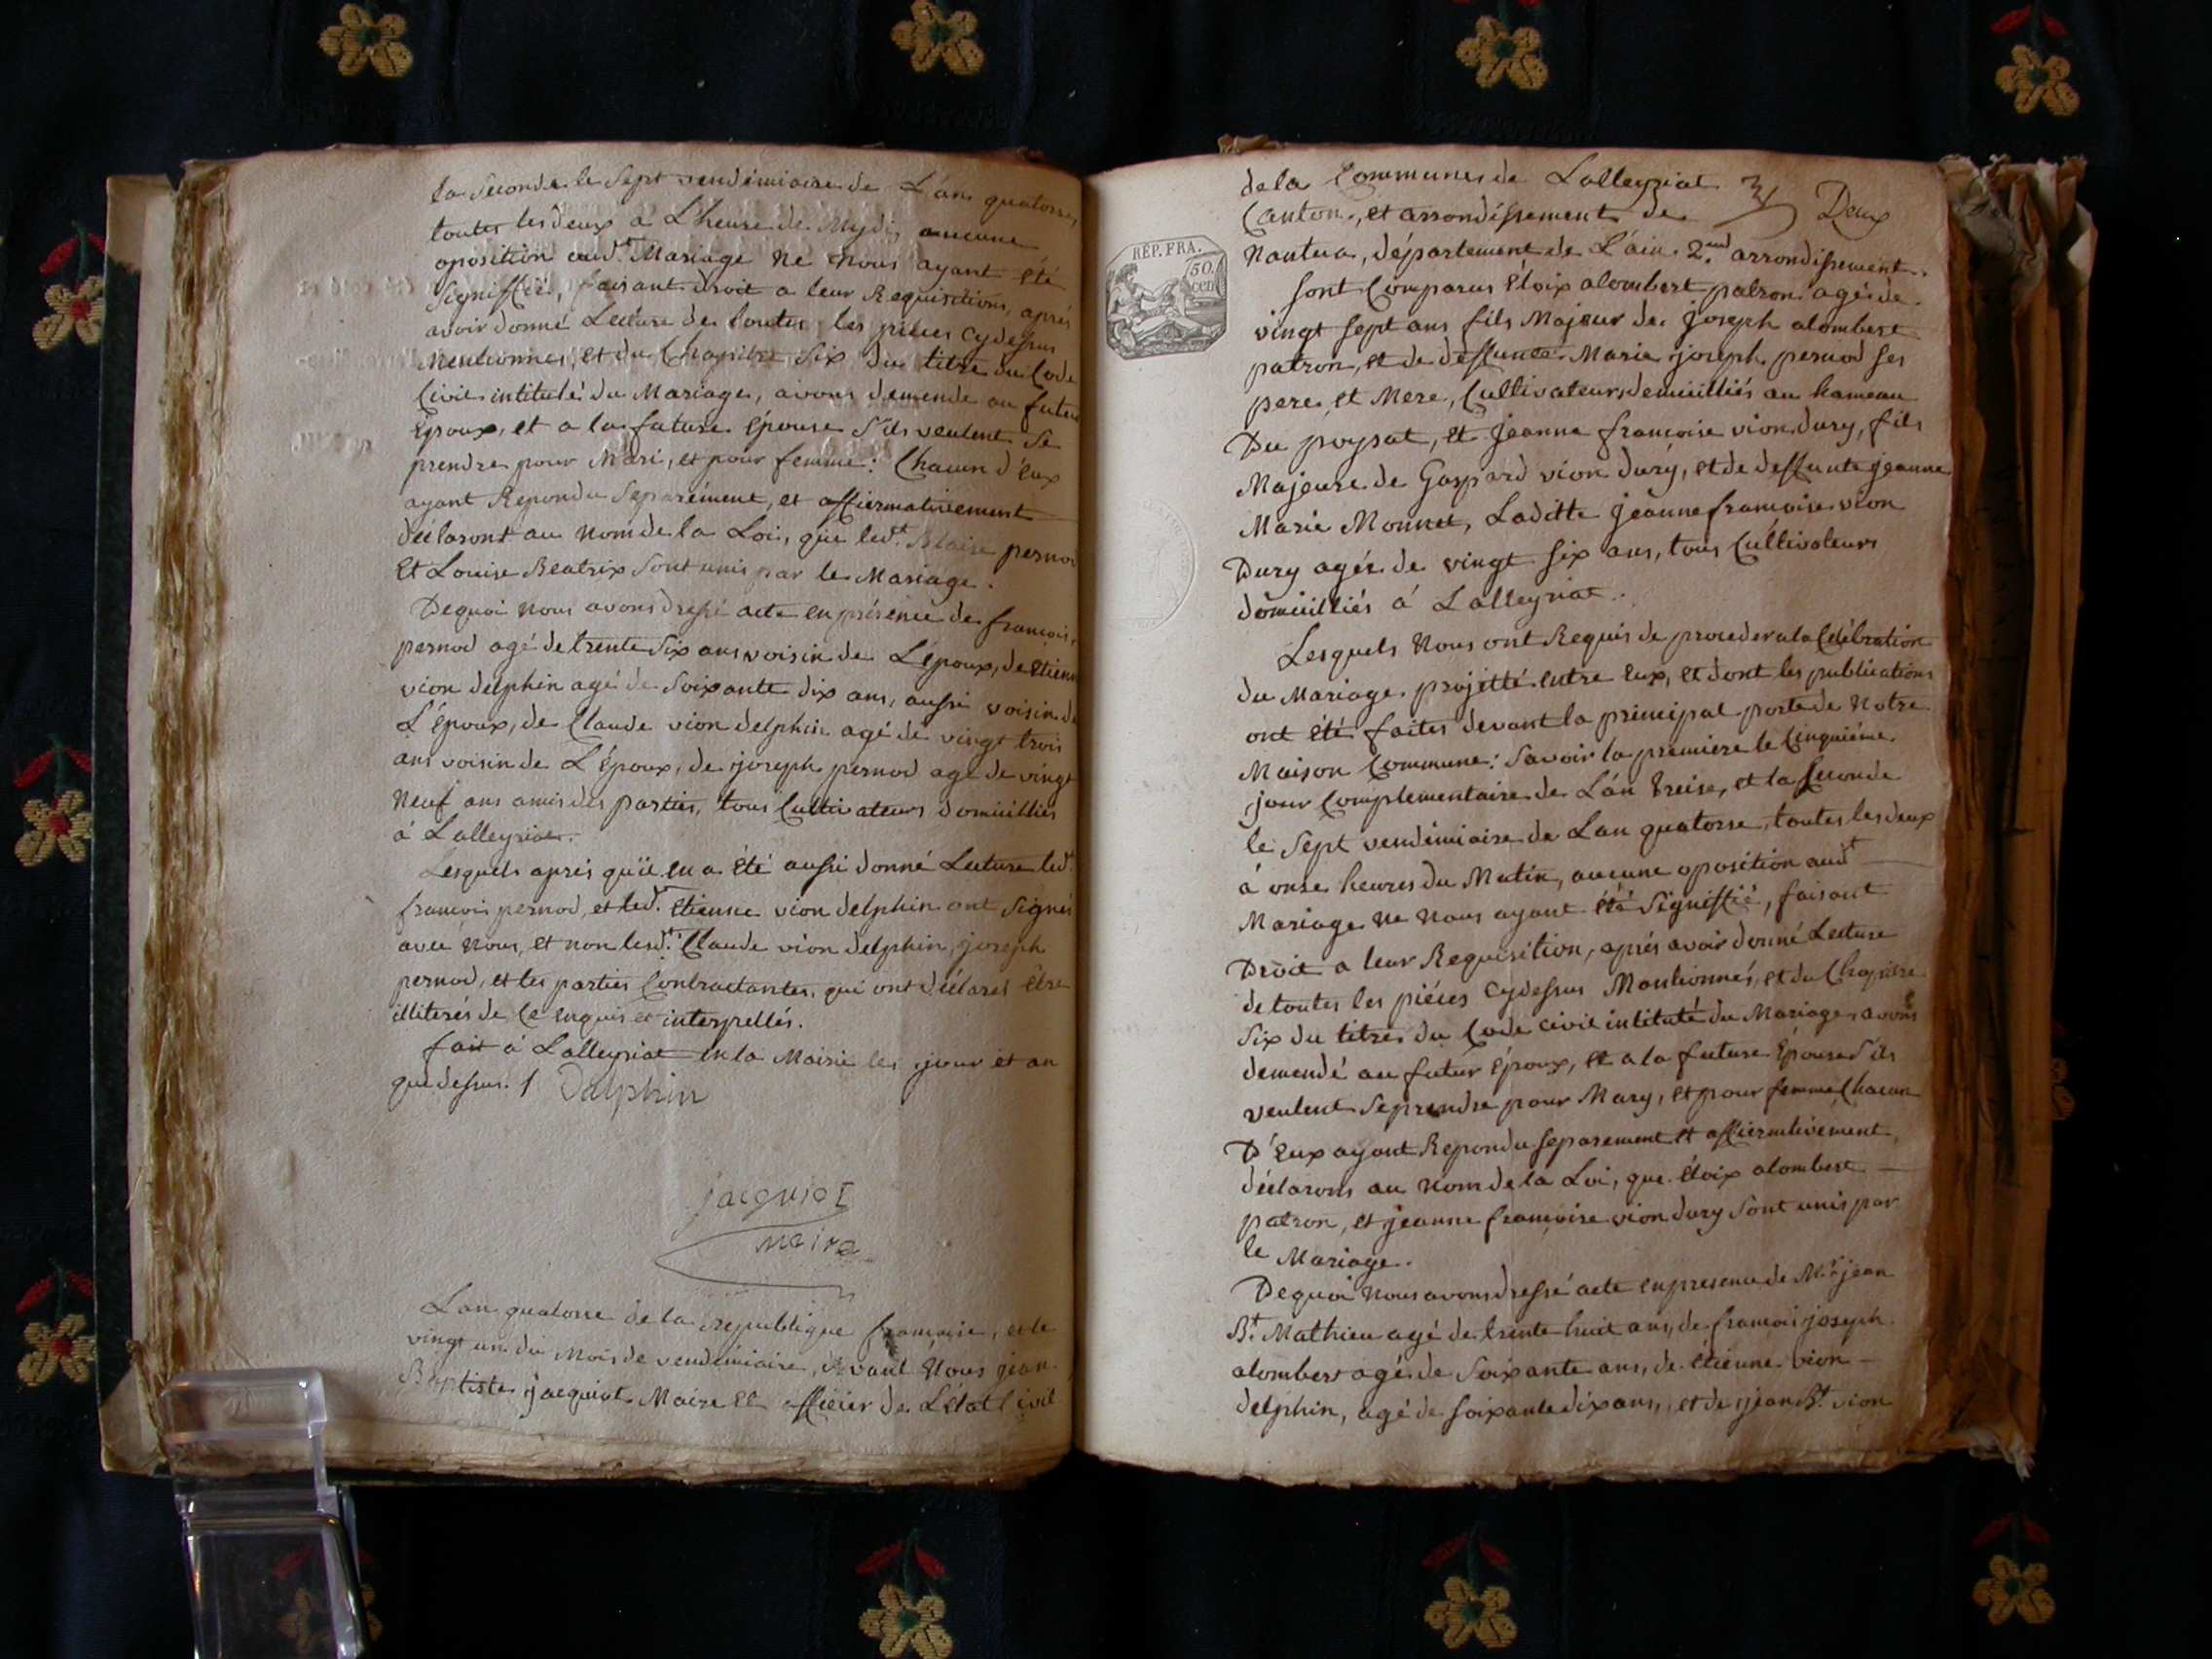 la Seconde le Sept vendémiaire de L'an quatorse,
toutes les deux a L'heure de Mydi, aucune
oposition aud.t Mariage ne nous ayant été
Signiffiée, faisant droit a leur Requisitions, aprés
avoir donné Lecture de toutes les pieces cydessus
mentionnes, et du Chapitre Six du titre du Code
Civil intitulé du Mariage, avons demende au futur
Epoux, et a la future Epouse S'ils veulent Se
prendre pour Mari, et pour femme: Chacun d'eux
ayant Repondu Separément, et affiermativement
déclaront au nom de la Loi, que led.t Blaise pernod
Et Louise Beatrix Sont unis par le Mariage.
Dequoi nous avons dressé acte en présence de francois
pernod agé de trente Six ans voisin de L'époux, de Etienne
vion delphin agé de Soixante dix ans, aussi voisin de
L'époux, de Claude vion delphin agé de vingt trois
ans voisin de L'époux, de joseph pernod agé de vingt
Neuf ans amis des parties, tous Cultivateurs domicilliés
á Lalleyriat.
Lesquels aprés qu'il en a été aussi donné Lecture led.t
francois pernod, et led.t Etienne vion delphin ont Signés
avec nous, et non lesd.ts Claude vion delphin, joseph
pernod, et les parties Contractantes, qui ont déclarés être
illiterés de Ce enquis et interpellés.
fait á Lalleyriat en la Mairie les jour et an
que dessus. / Dalphin
jacquiot
maire
Lan quatorse de la republique francoise, et le
vingt un du Mois de vendémiaire, devant Nous jean
Baptiste jacquiot Maire et officier de L'état Civil
dela Communes de Lalleyriat Deux
Canton, et arrondissement de
Nantua, département de L'ain. 2.end arrondissement.
RÉP. FRA.
50.
cen
Sont Comparus Eloix alombert patron agé de
vingt Sept ans fils Majeur de joseph alombert
patron, et de deffunte Marie joseph pernod ses
pere et Mere, Cultivateurs demicilliés au hameau
Du poysat, et jeanne francoise vion dury, fille
Majeure de Gaspard vion dury, et de deffunte jeanne
Marie Monnet, Laditte jeanne francoise vion
Dury agée de vingt Six ans, tous Cultivateurs
domicilliés á Lalleyriat.
Lesquels Nous ont Requis de proceder a la Célébration
du Mariage projetté entre Eux, et dont les publications
ont Eté faites devant la principal porte de Notre
Maison Commune: Savoir la premiere le Cinquiéme
jour Complementaire de L'án treise, et la Seconde
le Sept vendémiaire de Lan quatorse, toutes les deux
á onze heures du Matin, aucune oposition aud.t
Mariage ne nous ayant été Signiffié, faisant
Droit a leur Requisition, aprés avoir donné Lecture
de toutes les piéces cydessus Mentionnés, et du Chapitre
Six du titre du Code Civil intitulé du Mariage, avons
demendé au futur époux, et a la future Epouse S'ils
veulent Seprendre pour Mary, et pour femme, Chacun
D'eux ayant Repondu separement et affiermtivement,
déclarons au nom de la Loi, que Eloix alombert
patron, et jeanne francoise vion dury Sont unis par
le Mariage.
Dequoi Nous avons dressé acte en presence de M.r jean
B.t Mathieu agé de trente huit ans, de francois joseph
alombert agé de Soixante ans, de étienne vion
delphin, agé de soixante dix ans, et de jean B.t vion